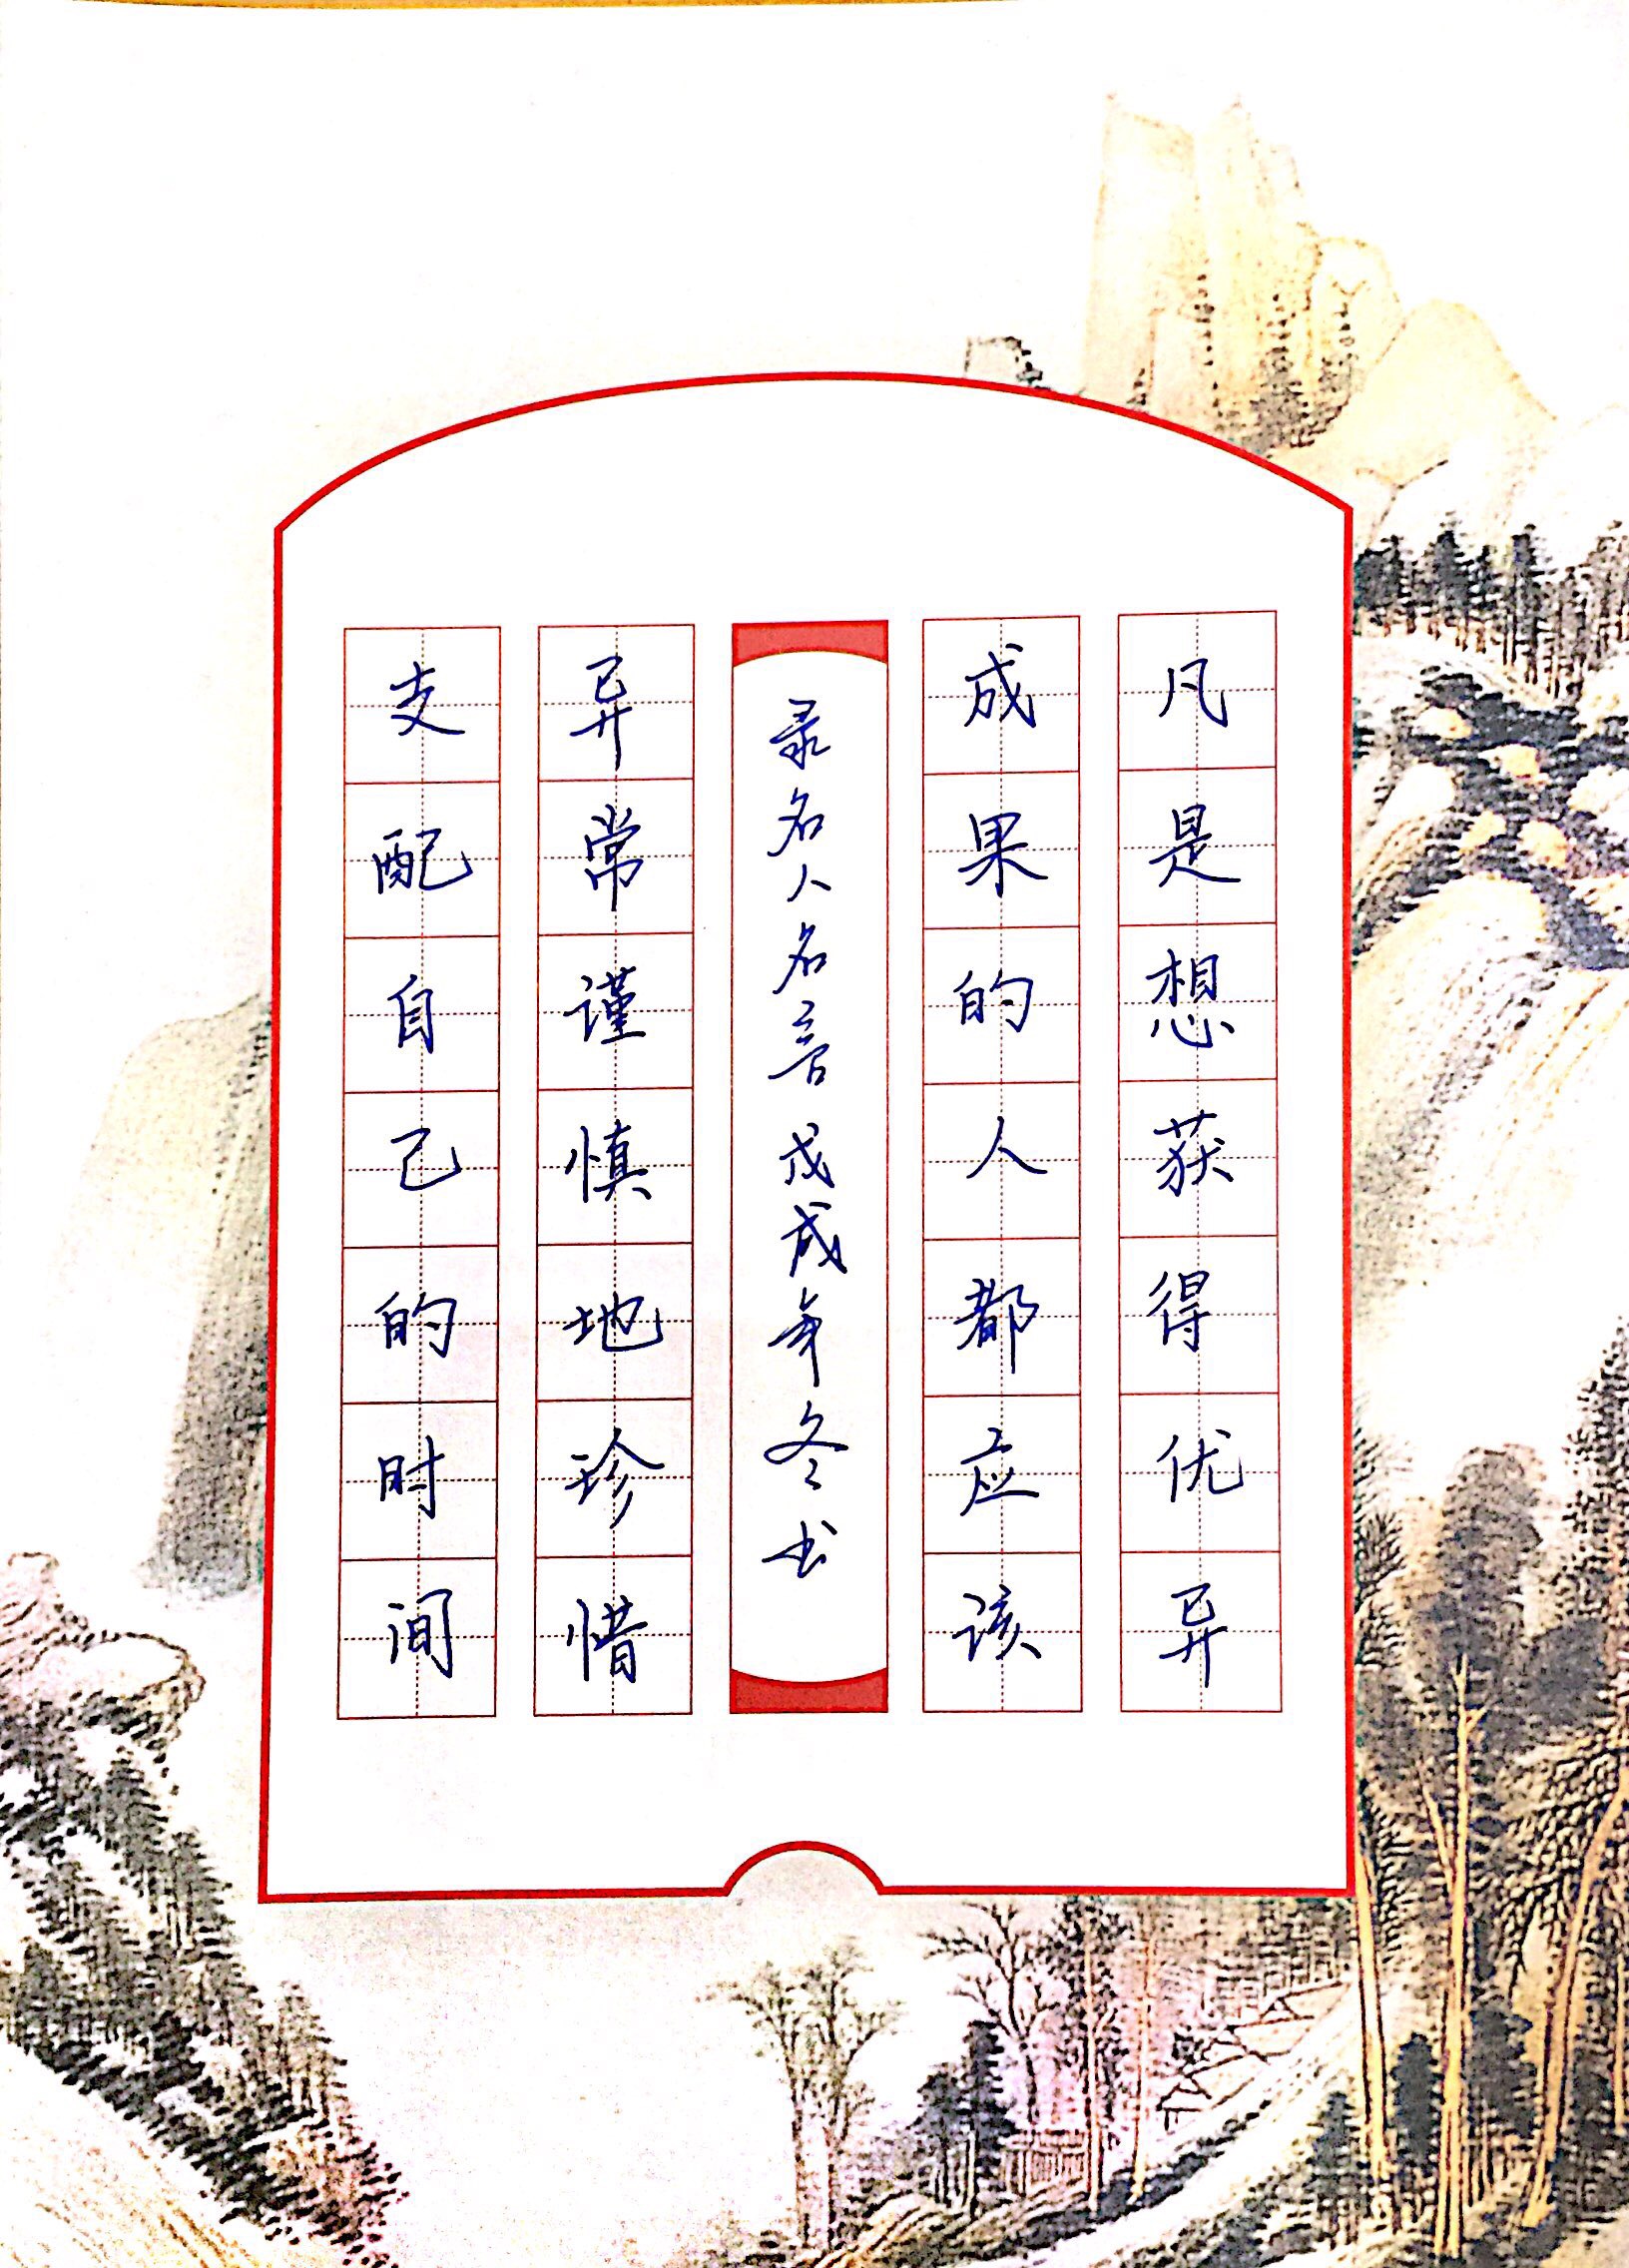 凡是想获得优异
成果的人都应该
录名人名言 戊戌年冬书
异常谨慎地珍惜
支配自己的时间